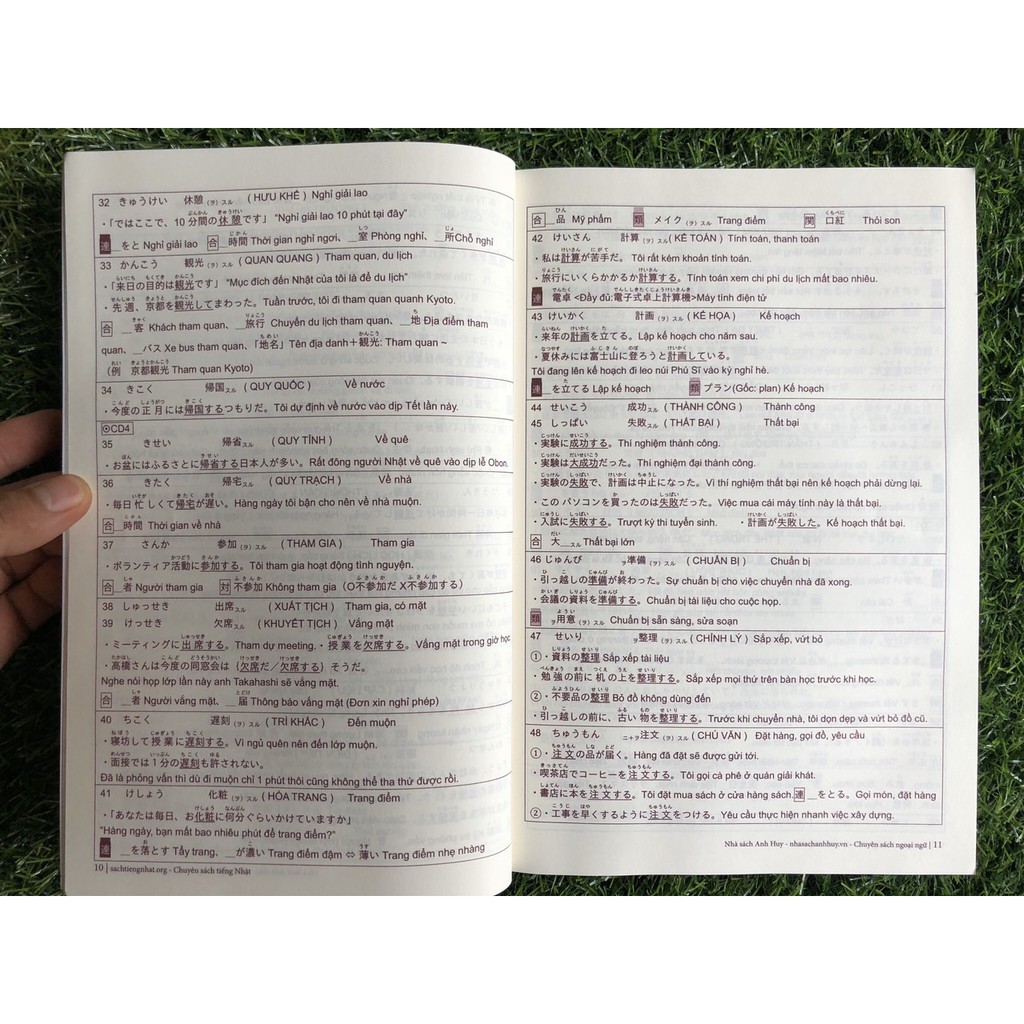 32 きゅうけい 休憩(ヲ)スル ( HƯU KHẾ ) Nghỉ giải lao
・「ではここで、10分間の休憩です」 “Nghỉ giải lao 10 phút tại đây”
連 __をとる Nghỉ giải lao 合 __時間 Thời gian nghỉ ngơi、__室 Phòng nghỉ、__所 Chỗ nghỉ
33 かんこう 観光(ヲ)スル ( QUAN QUANG ) Tham quan, du lịch
・「来日の目的は観光です」 “Mục đích đến Nhật của tôi là để du lịch”
・先週、京都を観光してまわった。 Tuần trước, tôi đi tham quan quanh Kyoto.
合 __客 Khách tham quan、__旅行 Chuyến du lịch tham quan、__地 Địa điểm tham
quan、__バス Xe bus tham quan、「地名」Tên địa danh＋観光: Tham quan ~
(例 京都観光 Tham quan Kyoto)
34 きこく 帰国スル ( QUY QUỐC ) Về nước
・今度の正月には帰国するつもりだ。Tôi dự định về nước vào dịp Tết lần này.
CD4
35 きせい 帰省スル ( QUY TỈNH ) Về quê
・お盆にはふるさとに帰省する日本人が多い。Rất đông người Nhật về quê vào dịp lễ Obon.
36 きたく 帰宅スル ( QUY TRẠCH ) Về nhà
・毎日忙しくて帰宅が遅い。Hàng ngày tôi bận cho nên về nhà muộn.
合 __時間 Thời gian về nhà
37 さんか 参加(ニ)スル ( THAM GIA ) Tham gia
・ボランティア活動に参加する。Tôi tham gia hoạt động tình nguyện.
合 __者 Người tham gia 対 不参加 Không tham gia (O不参加だ X不参加する)
38 しゅっせき 出席(ニ)スル ( XUẤT TỊCH ) Tham gia, có mặt
39 けっせき 欠席(ヲ)スル ( KHUYẾT TỊCH ) Vắng mặt
・ミーティングに出席する。Tham dự meeting. ・授業を欠席する。Vắng mặt trong giờ học.
・高橋さんは今度の同窓会は (欠席だ／欠席する) そうだ。
Nghe nói họp lớp lần này anh Takahashi sẽ vắng mặt.
合 __者 Người vắng mặt、__届 Thông báo vắng mặt (Đơn xin nghỉ phép)
40 ちこく 遅刻(ニ)スル ( TRÌ KHẮC ) Đến muộn
・寝坊して授業に遅刻する。Vì ngủ quên nên đến lớp muộn.
・面接では1分の遅刻も許されない。
Đã là phỏng vấn thì dù đi muộn chỉ 1 phút thôi cũng không thể tha thứ được rồi.
41 けしょう 化粧(ヲ)スル ( HÓA TRANG ) Trang điểm
・「あなたは毎日、お化粧に何分ぐらいかけていますか」
“Hàng ngày, bạn mất bao nhiêu phút để trang điểm?”
連 __を落とす Tẩy trang、__が濃い Trang điểm đậm ⇔ 薄い Trang điểm nhẹ nhàng
10 | sachtiengnhat.org - Chuyên sách tiếng Nhật
合 __品 Mỹ phẩm 類 メイク(ヲ)スル Trang điểm 関 口紅 Thỏi son
42 けいさん 計算(ヲ)スル ( KẾ TOÁN ) Tính toán, thanh toán
・私は計算が苦手だ。 Tôi rất kém khoản tính toán.
・旅行にいくらかかるか計算する。 Tính toán xem chi phí du lịch mất bao nhiêu.
連 電卓 <Đầy đủ:電子式卓上計算機>Máy tính điện tử
43 けいかく 計画(ヲ)スル ( KẾ HỌA ) Kế hoạch
・来年の計画を立てる。Lập kế hoạch cho năm sau.
・夏休みには富士山に登ろうと計画している。
Tôi đang lên kế hoạch đi leo núi Phú Sĩ vào kỳ nghỉ hè.
連 __を立てる Lập kế hoạch 類 プラン(Gốc: plan) Kế hoạch
44 せいこう 成功スル ( THÀNH CÔNG ) Thành công
45 しっぱい 失敗スル ( THẤT BẠI ) Thất bại
・実験に成功する。Thí nghiệm thành công.
・実験は大成功だった。Thí nghiệm đại thành công.
・実験の失敗で、計画は中止になった。Vì thí nghiệm thất bại nên kế hoạch phải dừng lại.
・このパソコンを買ったのは失敗だった。 Việc mua cái máy tính này là thất bại.
・入試に失敗する。Trượt kỳ thi tuyển sinh. ・計画が失敗した。Kế hoạch thất bại.
合 大__ Thất bại lớn
46 じゅんび ヲ準備(ヲ)スル ( CHUẨN BỊ ) Chuẩn bị
・引っ越しの準備が終わった。Sự chuẩn bị cho việc chuyển nhà đã xong.
・会議の資料を準備する。Chuẩn bị tài liệu cho cuộc họp.
類 ヲ用意(ヲ)スル Chuẩn bị sẵn sàng, sửa soạn
47 せいり ヲ整理(ヲ)スル ( CHỈNH LÝ ) Sắp xếp, vứt bỏ
①・資料の整理 Sắp xếp tài liệu
・勉強の前に机の上を整理する。Sắp xếp mọi thứ trên bàn học trước khi học.
②・不要品の整理 Bỏ đồ không dùng đến
・引っ越しの前に、古い物を整理する。Trước khi chuyển nhà, tôi dọn dẹp và vứt bỏ đồ cũ.
48 ちゅうもん ニ+ヲ注文(ヲ)スル ( CHÚ VĂN ) Đặt hàng, gọi đồ, yêu cầu
①・注文の品が届く。Hàng đã đặt sẽ được gửi tới.
・喫茶店でコーヒーを注文する。Tôi gọi cà phê ở quán giải khát.
・書店に本を注文する。Tôi đặt mua sách ở cửa hàng sách.連 __をとる。Gọi món, đặt hàng
②・工事を早くするように注文をつける。Yêu cầu thực hiện nhanh việc xây dựng.
Nhà sách Anh Huy - nhasachanhhuy.vn - Chuyên sách ngoại ngữ | 11